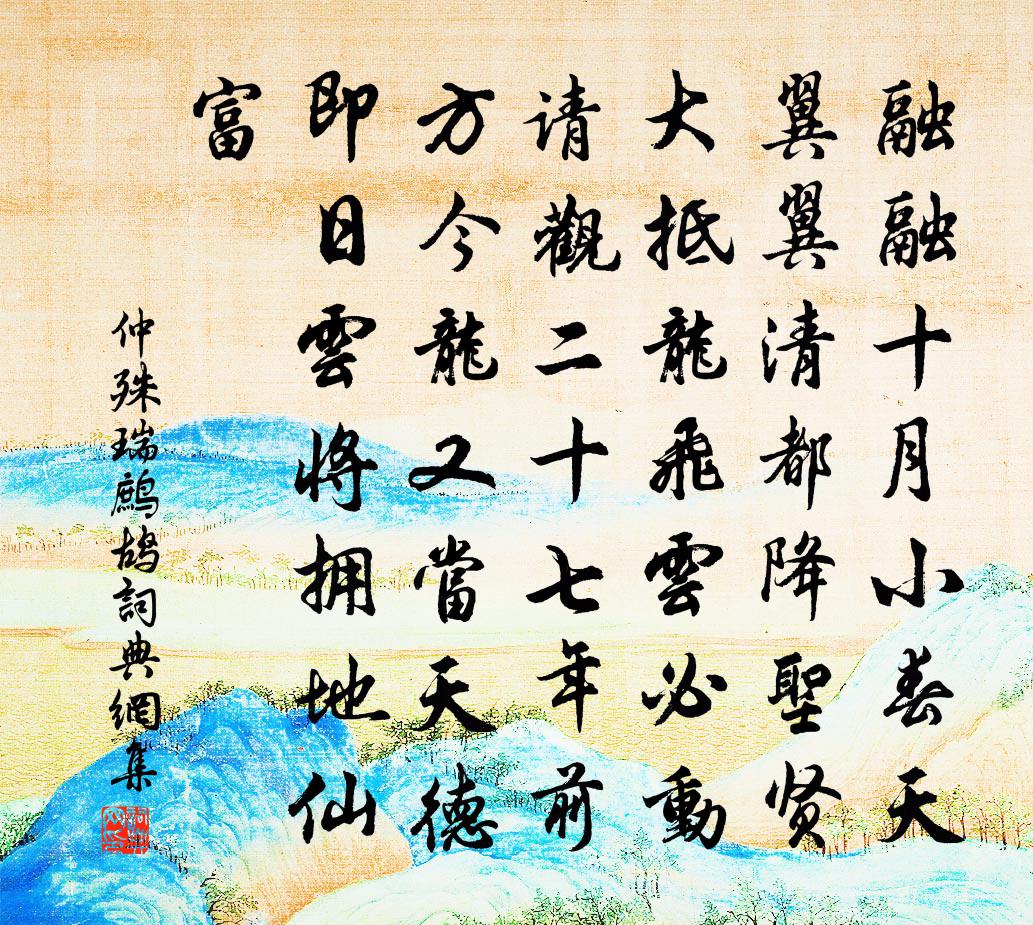 融融十月小春天
翼翼清都降聖贤
大抵龍飛雲必動
请觀二十七年前
方今龍又當天德
即日雲将拥地仙
富
仲殊瑞鷓鸪詞典網集